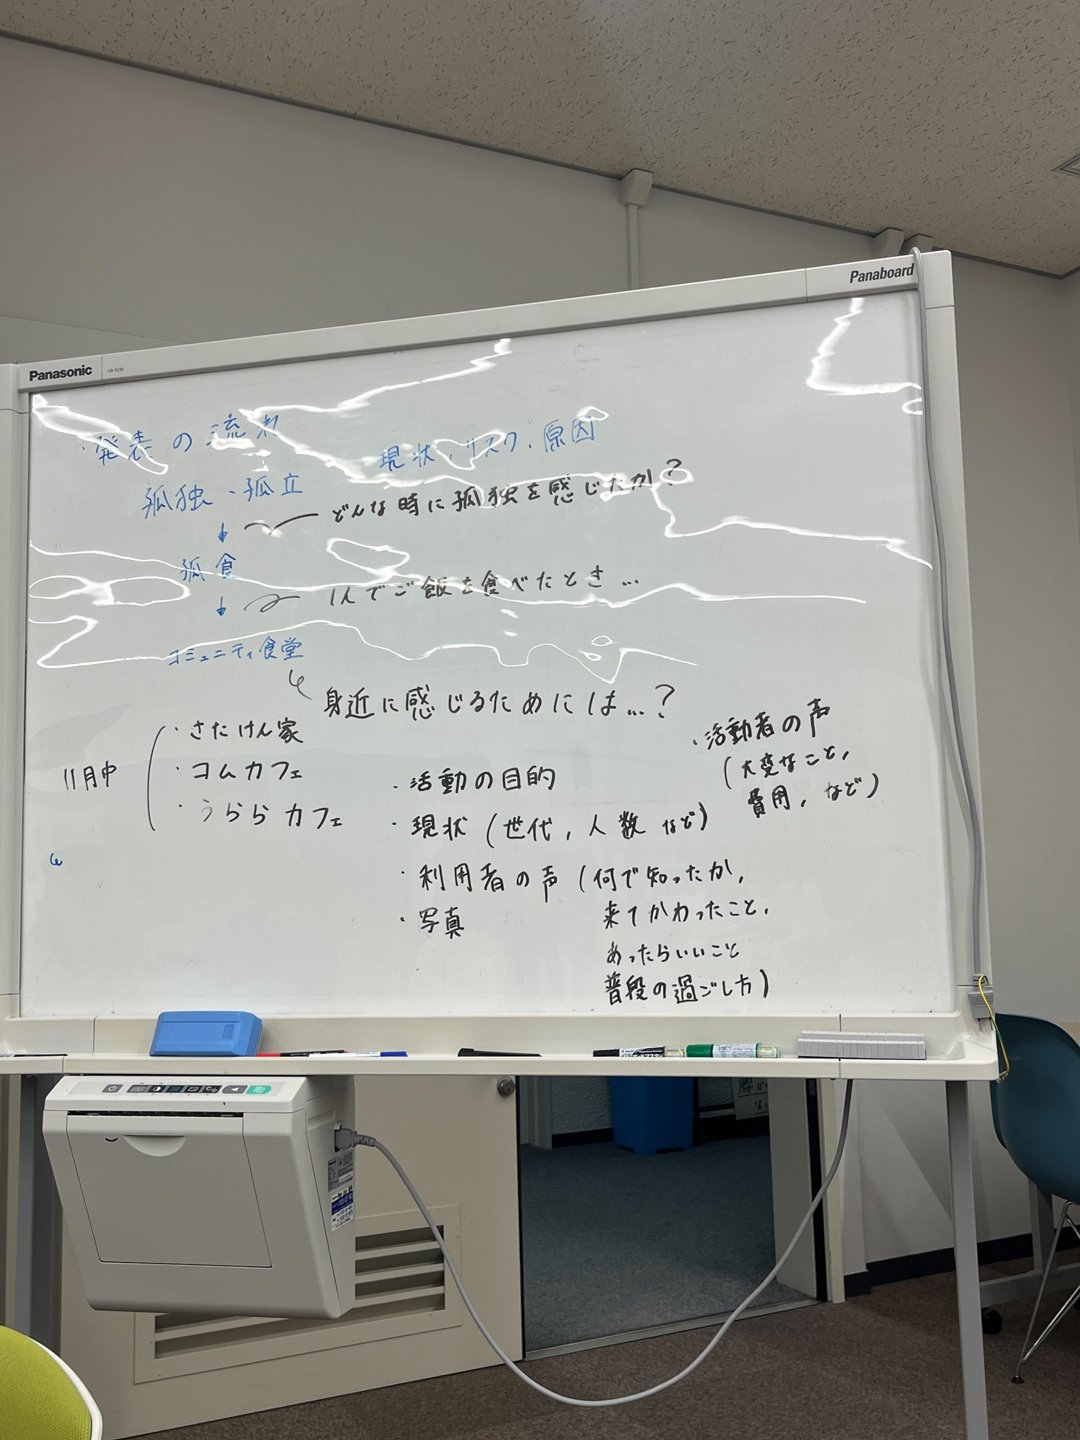 Panaboard
Panasonic
・発表の流れ
現状、リスク、原因
孤独・孤立
どんな時に孤独を感じたか？
↓
孤食
1人でご飯を食べたとき…
↓
コミュニティ食堂
身近に感じるためには…？
11月中
・さたけん家
・コムカフェ
・うららカフェ
・活動の目的
・現状（世代，人数 など）
・利用者の声（何で知ったか，
来てかわったこと，
あったらいいこと
普段の過ごし方）
・写真
・活動者の声
（大変なこと，
費用，など）